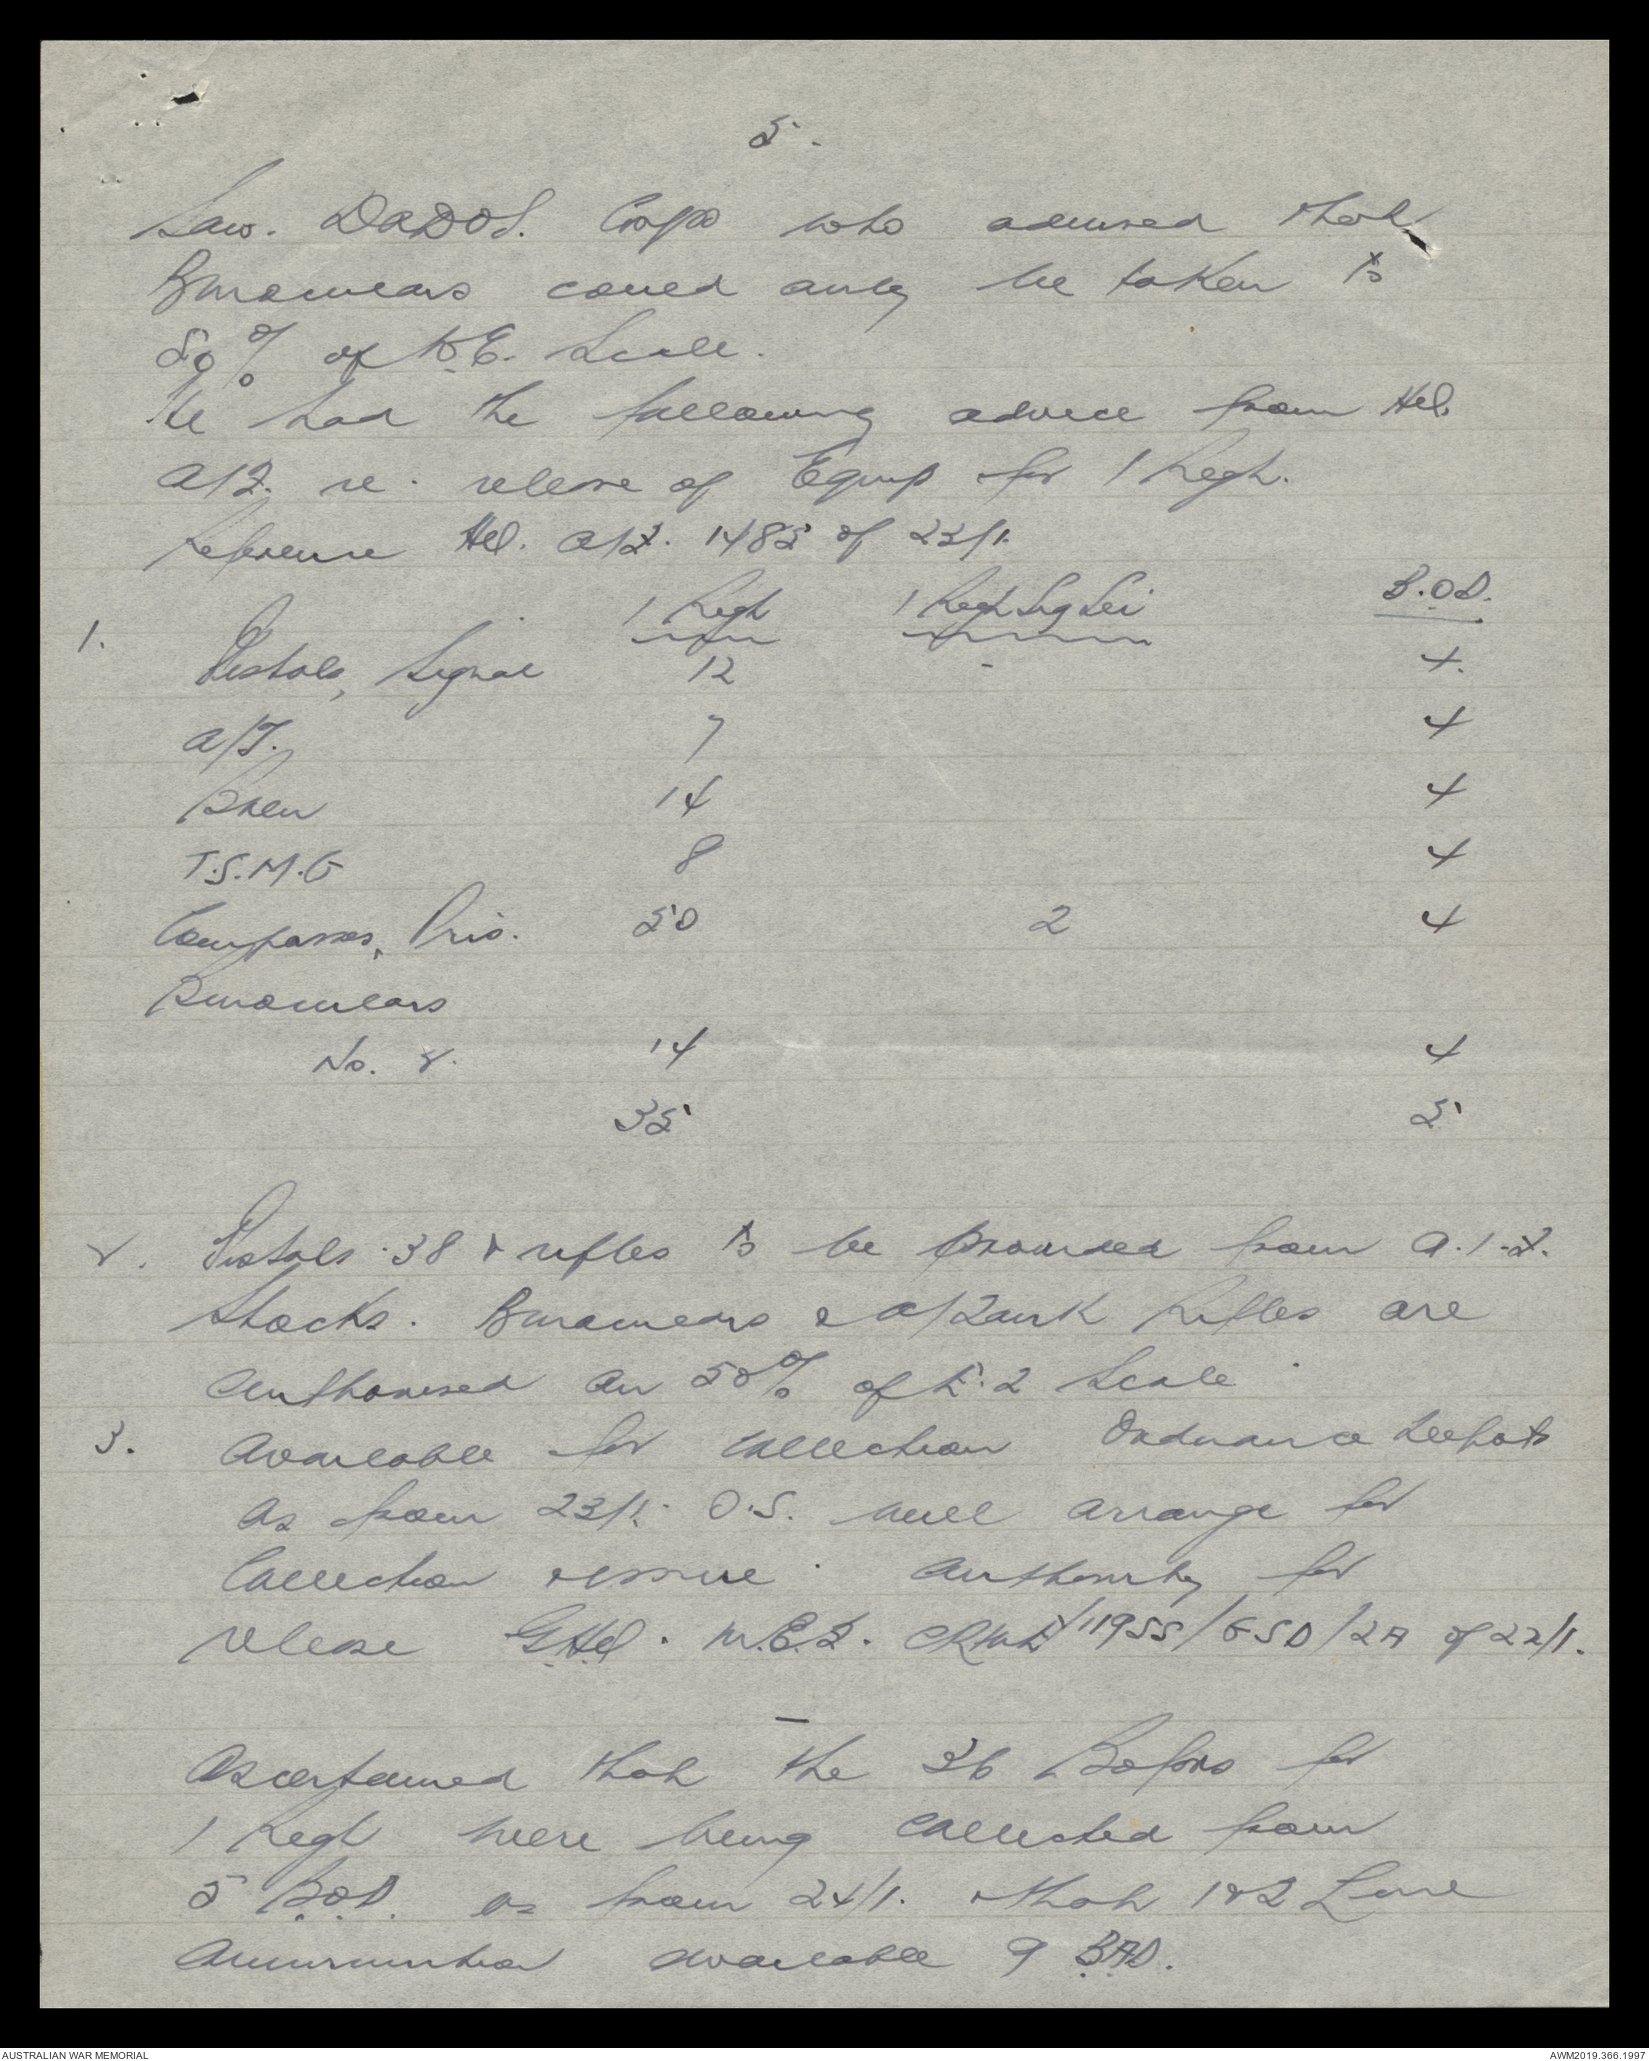 5.
Saw. DADOS. Corps who advised that
Binoculars could only be taken to
50% of W.E. Scale.
He had the following advice from HQ.
AIF. re. release of Equip for 1 Regt.
Reference HQ. AIF. 1485 of 23/1.
1 Regt 1 Regt Sig Sec B.O.D.
1. Pistols, Signal 12 - 4.
A/T. 7 4
Bren 14 4
T.S.M.G 8 4
Compasses, Pris. 50 2 4
Binoculars
No. 2. 14 4
35 5
2. Pistols .38 & rifles to be provided from A.I.F.
Stocks. Binoculars & A/Tank Rifles are
authorised on 50% of scale
3. Available for collection Ordnance Depots
as from 23/1. O.S. will arrange for
Collection & issue. Authority for
release GHQ. M.E.F. CRME/11955/GSD/2A of 22/1.
-
Ascertained that the 36 Bofors for
1 Regt were being collected from
5 B.O.D. as from 24/1. & that 1 & 2 Line
Ammunition available 9 B.A.D.
AUSTRALIAN WAR MEMORIAL
AWM2019.366.1997